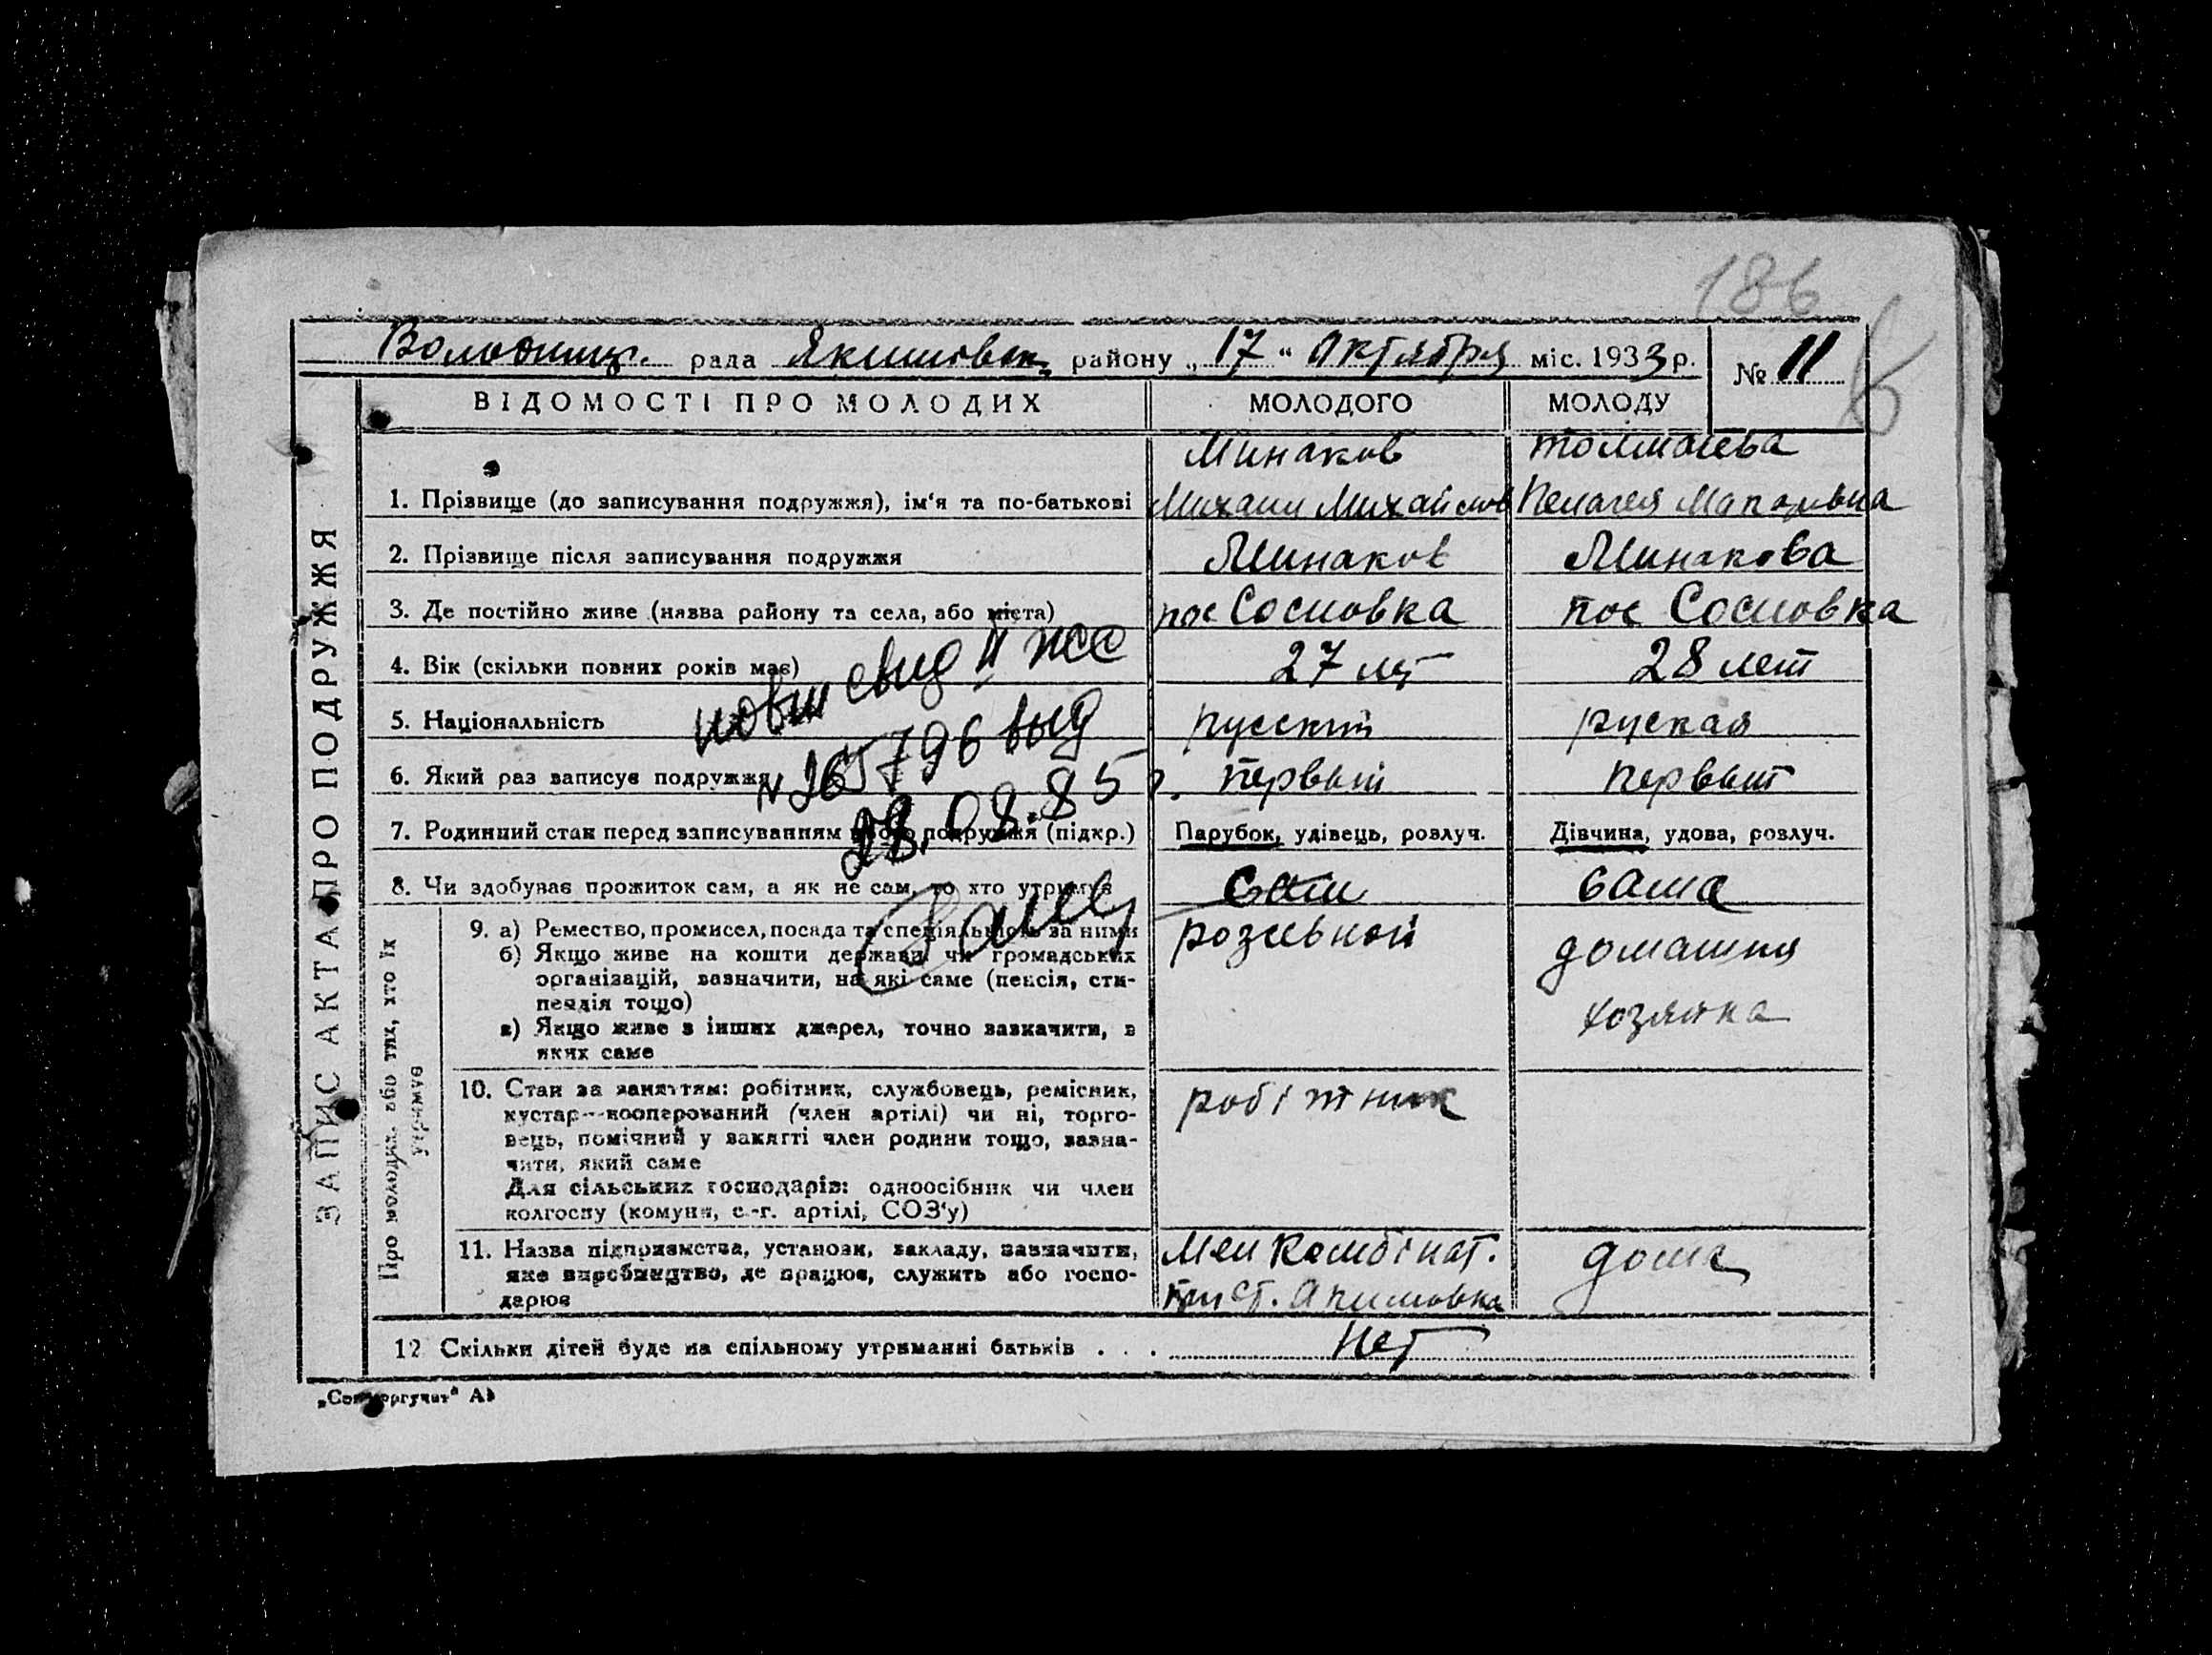 186
Володимир. рада Якимовск. району „17“ Октября міс. 1933 р. № 11
ВІДОМОСТІ ПРО МОЛОДИХ МОЛОДОГО МОЛОДУ
Минаков Толмачева
1. Прізвище (до записування подружжя), ім'я та по-батькові Михаил Михайлов Пелагея
2. Прізвище після записування подружжя Минаков Минакова
3. Де постійно живе (назва району та села, або міста) пос Сосновка пос Сосновка
4. Вік (скільки повних років має) 27 лет 28 лет
5. Національність русский руская
6. Який раз записує подружжя первый первый
7. Родинний стан перед записуванням цього подружжя (підкр.) Парубок, удівець, розлуч. Дівчина, удова, розлуч.
8. Чи здобуває прожиток сам, а як не сам, то хто утримує сам сама
9. а) Ремество, промисел, посада та спеціяльність за ними
б) Якщо живе на кошти держави чи громадських
організацій, зазначити, на які саме (пенсія, сти-
пендія тощо)
в) Якщо живе з інших джерел, точно зазначити, з
яких саме
домашня
хозяйка
10. Стан за заняттям: робітник, службовець, ремісник,
кустар—кооперований (член артілі) чи ні, торго-
вець, помічний у занятті член родини тощо, зазна-
чити, який саме
Для сільських господарів: одноосібник чи член
колгоспу (комуни, с.-г. артілі, СОЗ'у)
робітник
11. Назва підприємства, установи, закладу, зазначити,
яке виробництво, де працює, служить або госпо-
дарює
Мел Комбінат.
при ст. Акимовка
дома
12 Скільки дітей буде на спільному утриманні батьків . . . Нет
ЗАПИС АКТА ПРО ПОДРУЖЖЯ
Про молодих або тих, хто їх
утримує
повт свид II ЖС
N 265796 выд
28.08.85 г.